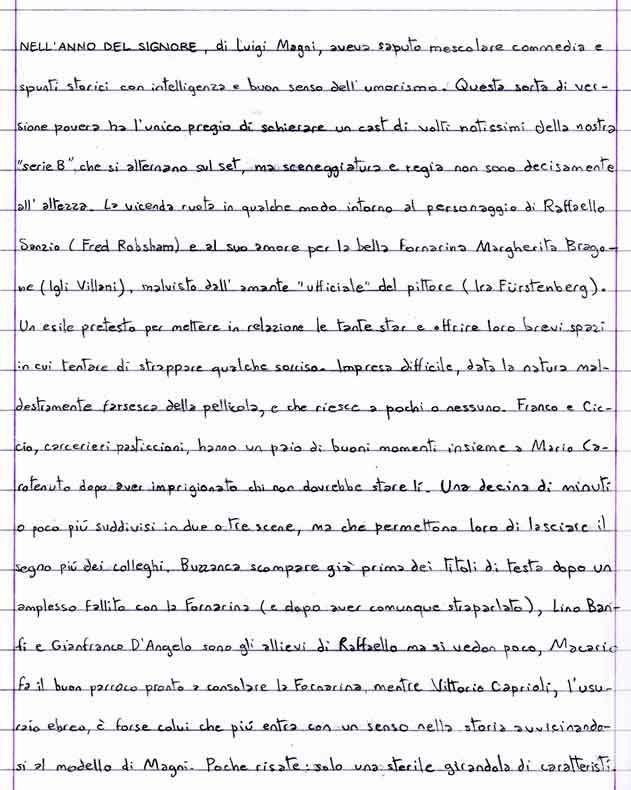 NELL'ANNO DEL SIGNORE, di Luigi Magni, aveva saputo mescolare commedia e
spunti storici con intelligenza e buon senso dell'umorismo. Questa sorta di ver-
sione povera ha l'unico pregio di schierare un cast di volti notissimi della nostra
"serie B", che si alternano sul set, ma sceneggiatura e regia non sono decisamente
all'altezza. La vicenda ruota in qualche modo intorno al personaggio di Raffaello
Sanzio (Fred Robsham) e al suo amore per la bella Fornarina Margherita Brago-
ne (Igli Villani), malvisto dall'amante "ufficiale" del pittore (Ira Fürstenberg).
Un esile pretesto per mettere in relazione le tante star e offrire loro brevi spazi
in cui tentare di strappare qualche sorriso. Impresa difficile, data la natura mal-
destramente farsesca della pellicola, e che riesce a pochi o nessuno. Franco e Cic-
cio, carcerieri pasticcioni, hanno un paio di buoni momenti insieme a Mario Ca-
rotenuto dopo aver imprigionato chi non dovrebbe stare lí. Una decina di minuti
o poco piú suddivisi in due o tre scene, ma che permettono loro di lasciare il
segno piú dei colleghi. Buzzanca scompare già prima dei titoli di testa dopo un
amplesso fallito con la Fornarina (e dopo aver comunque straparlato), Lino Ban-
fi e Gianfranco D'Angelo sono gli allievi di Raffaello ma si vedon poco, Macario
fa il buon parroco pronto a consolare la Fornarina, mentre Vittorio Caprioli, l'usu-
raio ebreo, è forse colui che piú entra con un senso nella storia avvicinando-
si al modello di Magni. Poche risate: solo una sterile girandola di caratteristi.